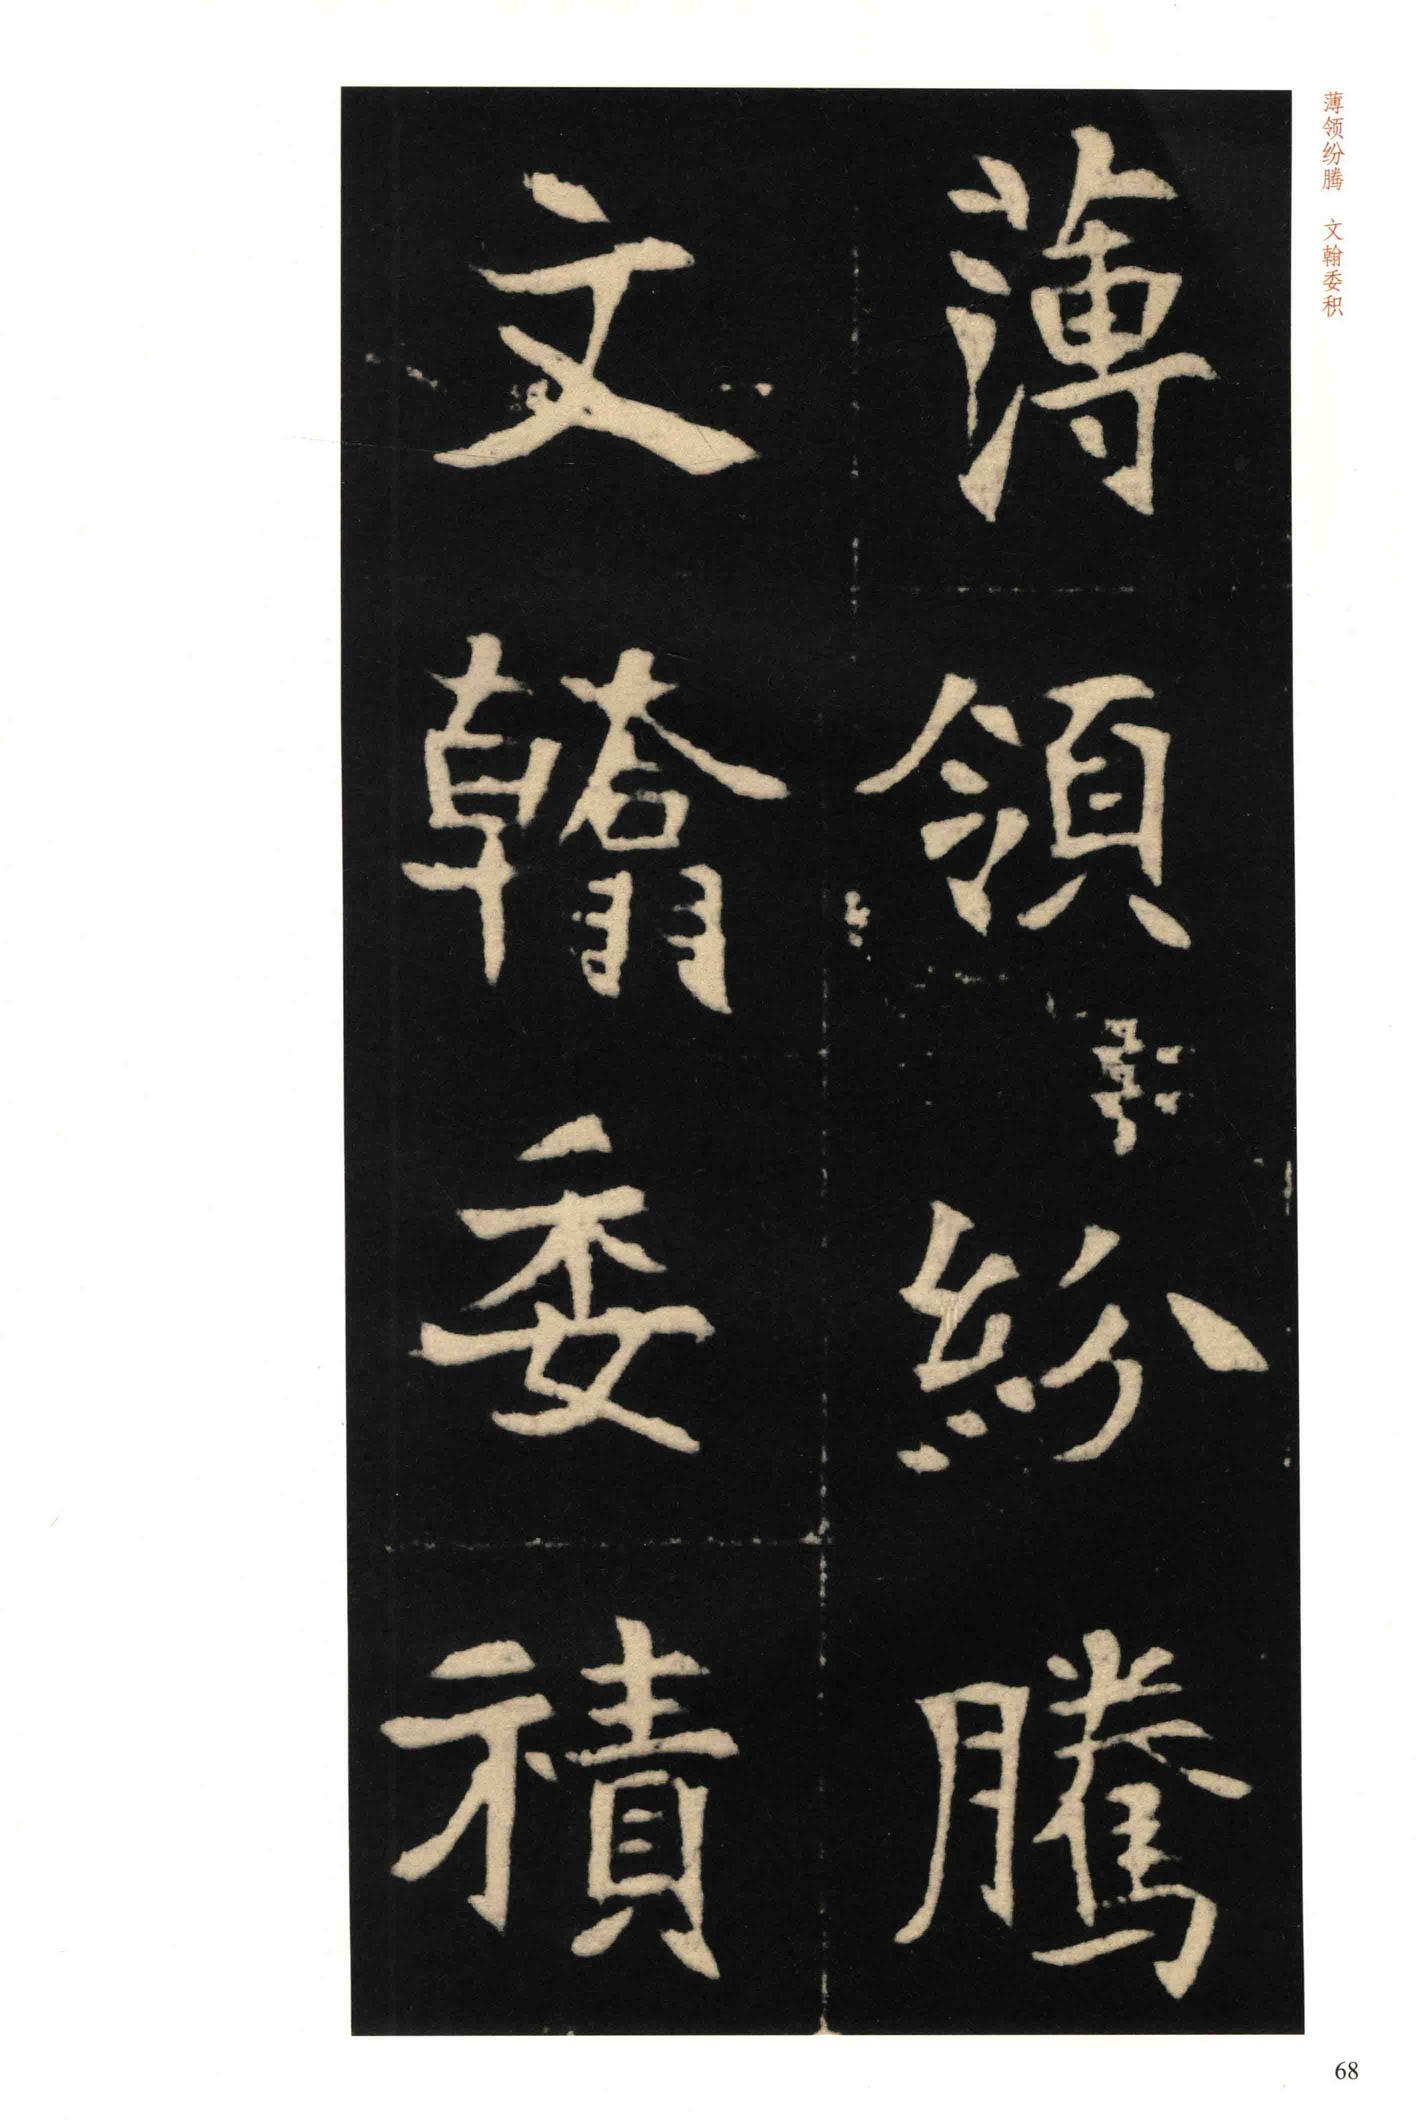 薄领纷腾 文翰委积
薄領紛騰
文翰委積
68